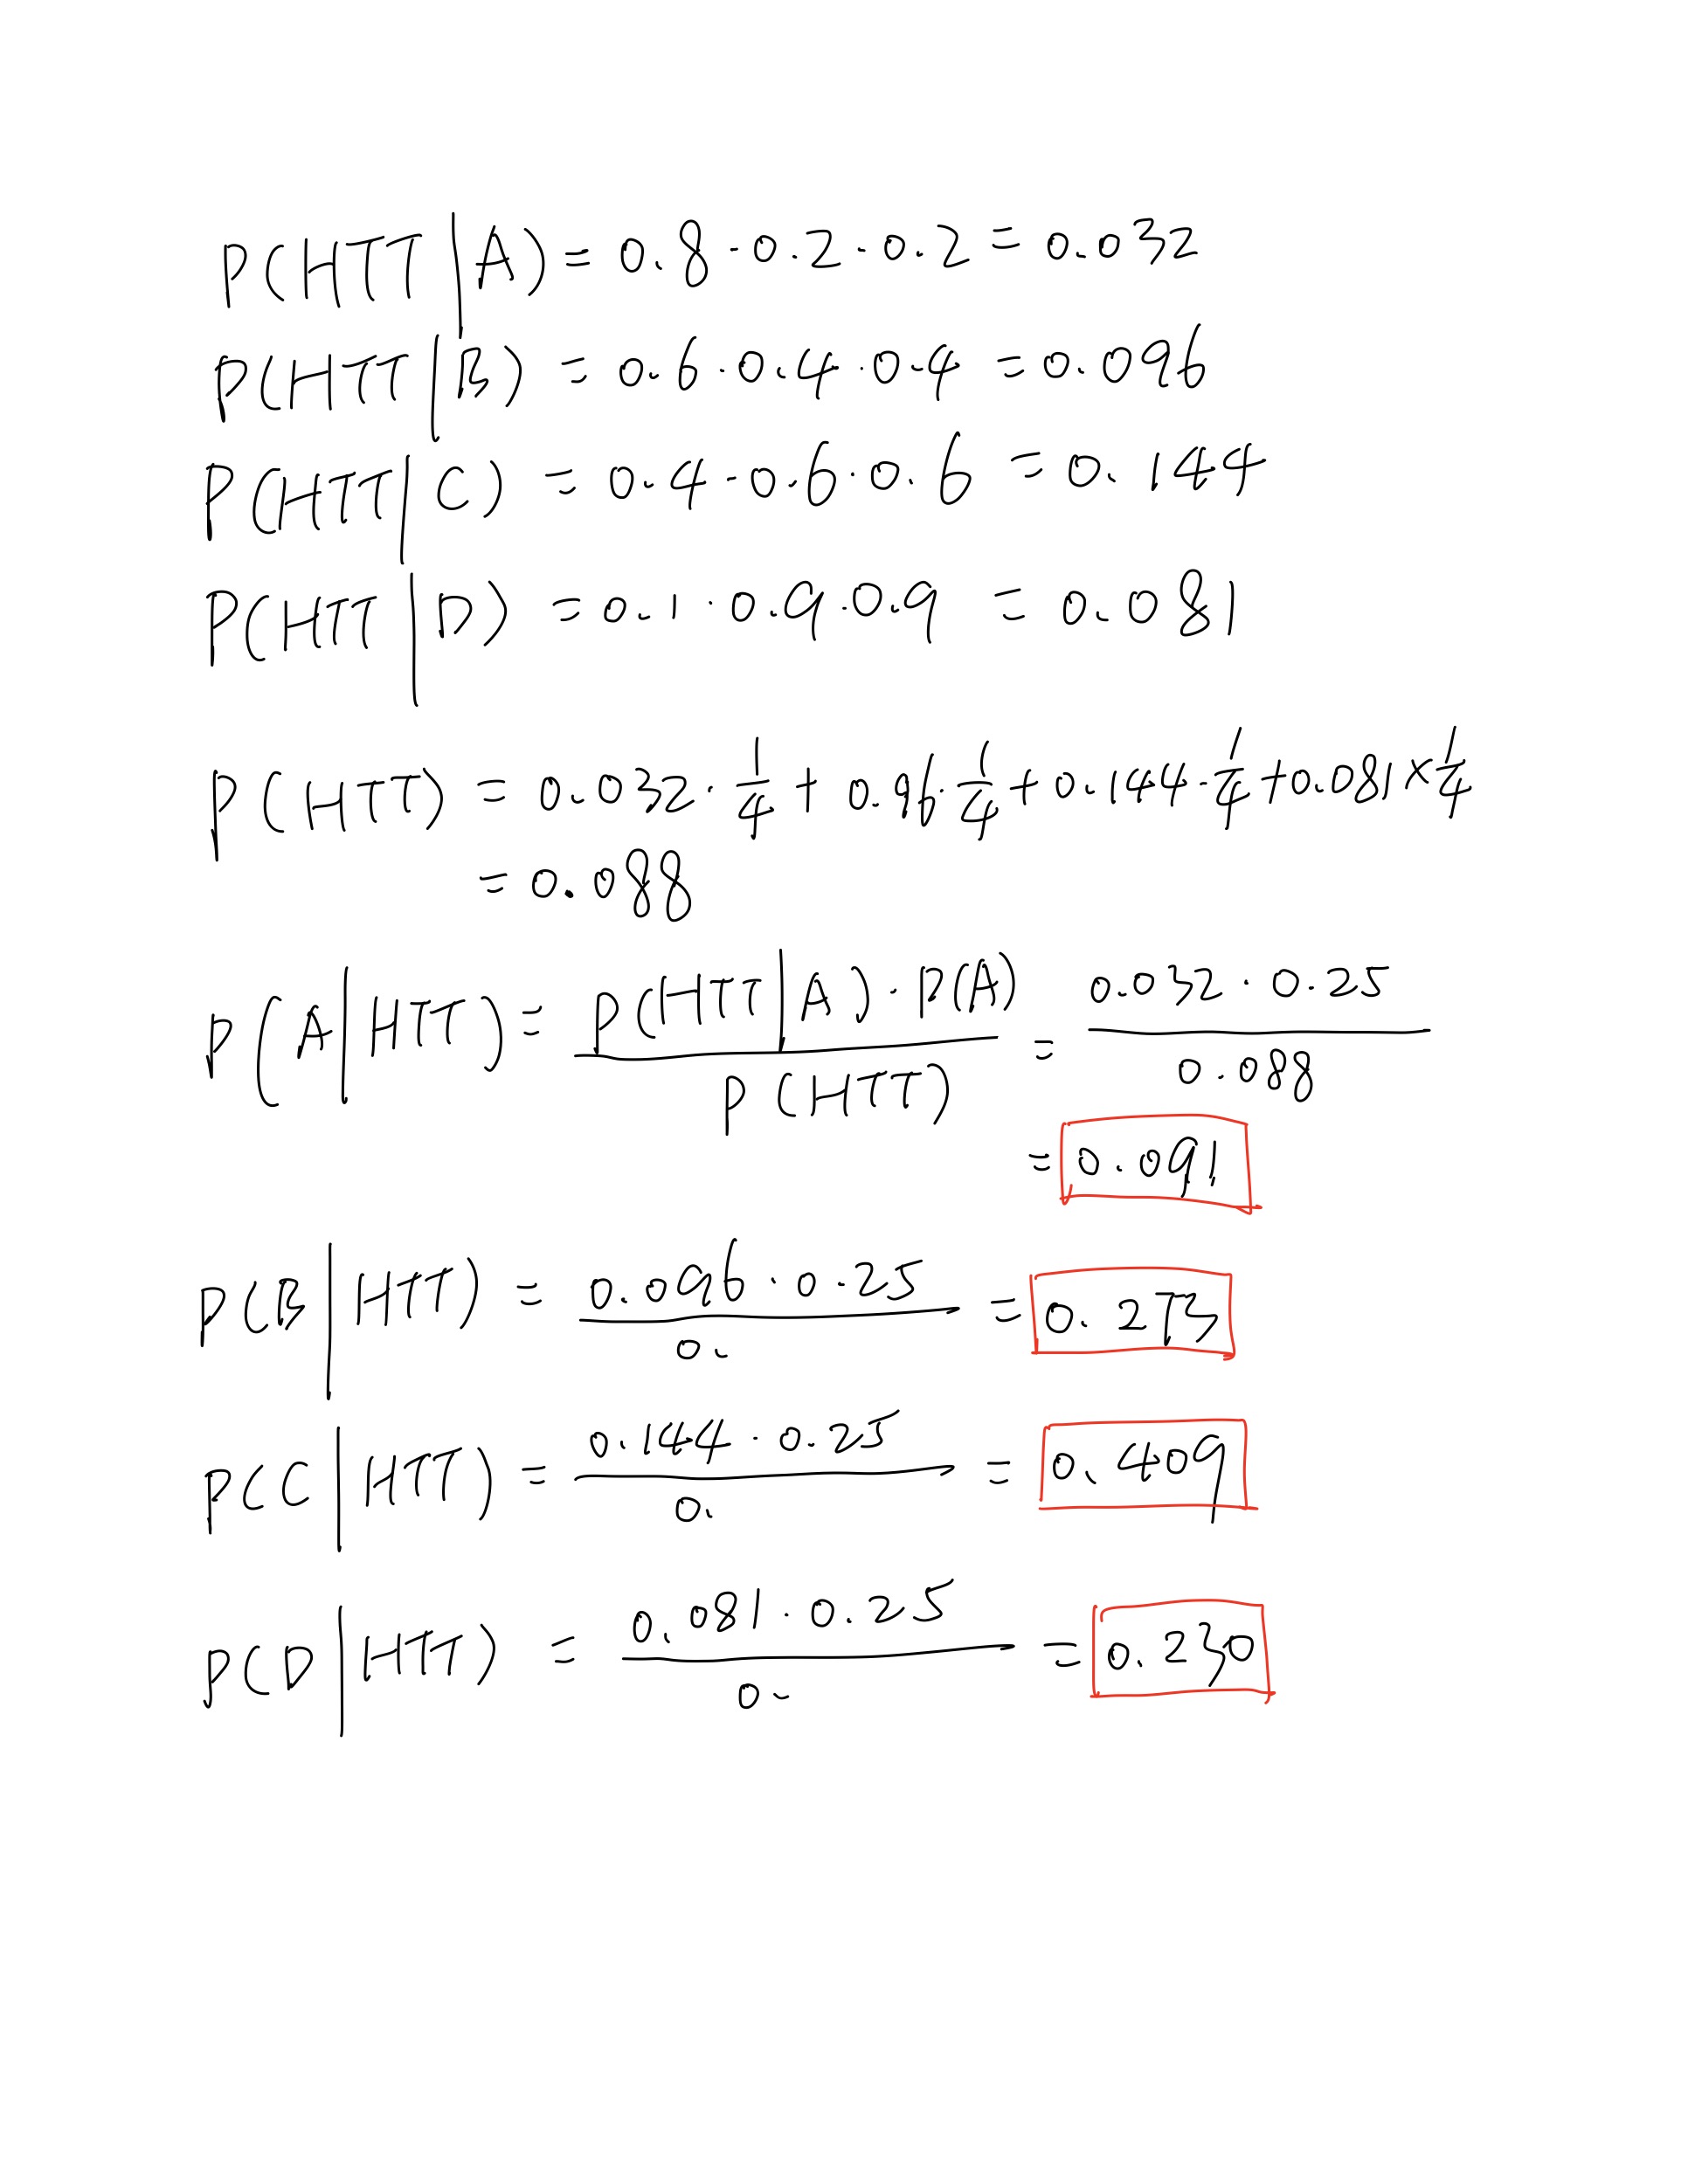 P(HTT|A) = 0.8 · 0.2 · 0.2 = 0.032
P(HTT|B) = 0.6 · 0.4 · 0.4 = 0.096
P(HTT|C) = 0.4 · 0.6 · 0.6 = 0.144
P(HTT|D) = 0.1 · 0.9 · 0.9 = 0.081
P(HTT) = 0.032 · 1/4 + 0.96 · 1/4 + 0.144 · 1/4 + 0.081 × 1/4
= 0.088
P(A|HTT) = P(HTT|A) · P(A) / P(HTT) = 0.032 · 0.25 / 0.088
= 0.091
P(B|HTT) = 0.096 · 0.25 / 0. = 0.273
P(C|HTT) = 0.144 · 0.25 / 0. = 0.409
P(D|HTT) = 0.081 · 0.25 / 0. = 0.230